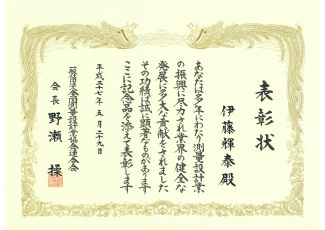 表彰状
伊藤輝泰殿
あなたは多年にわたり測量設計業
の振興に尽力され業界の健全な
発展に多大な貢献をされました
その功績は誠に顕著なものがあります
ここに記念品を添えて表彰します
平成二十七年五月二十九日
一般社団法人全国測量設計業協会連合会
会長 野瀬操